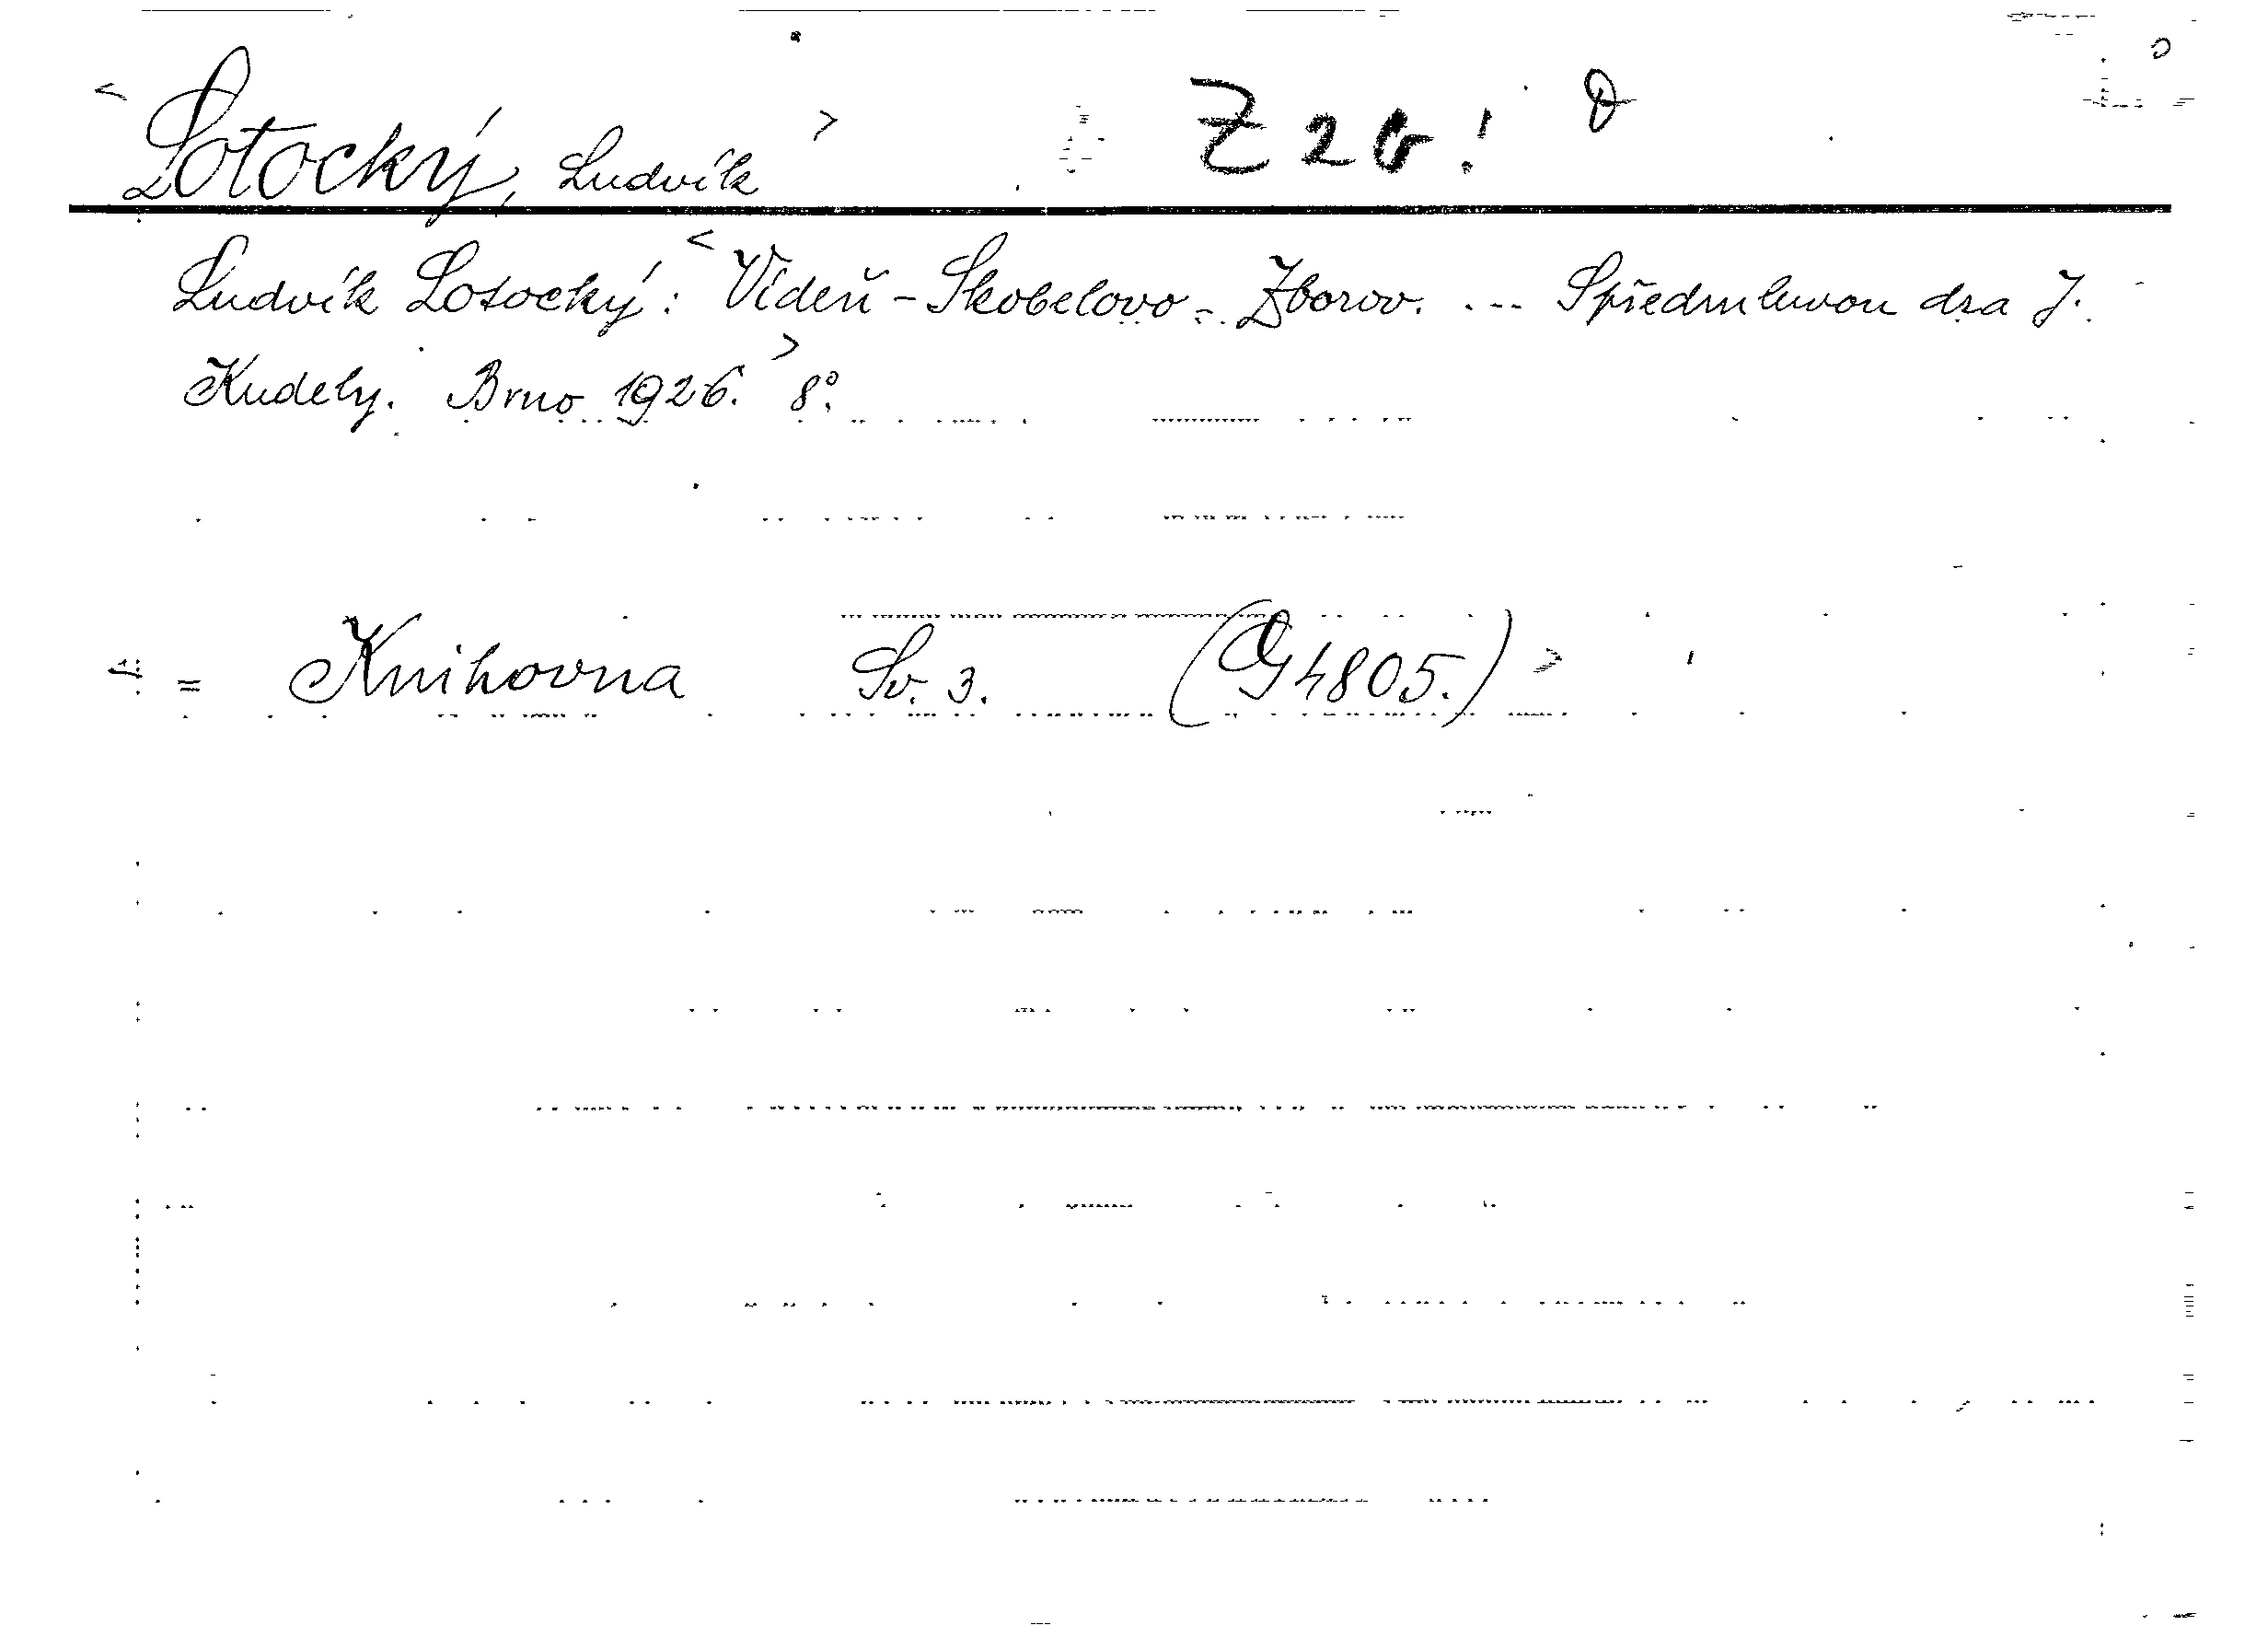 < Lotocký, Ludvík >
Ludvík Lotocký: < Vídeň - Skobelovo - Zborov. ... S předmluvou dra J.
Kudely. Brno 1926. > 8°.
< = Knihovna Sv. 3. (G 4805.) >